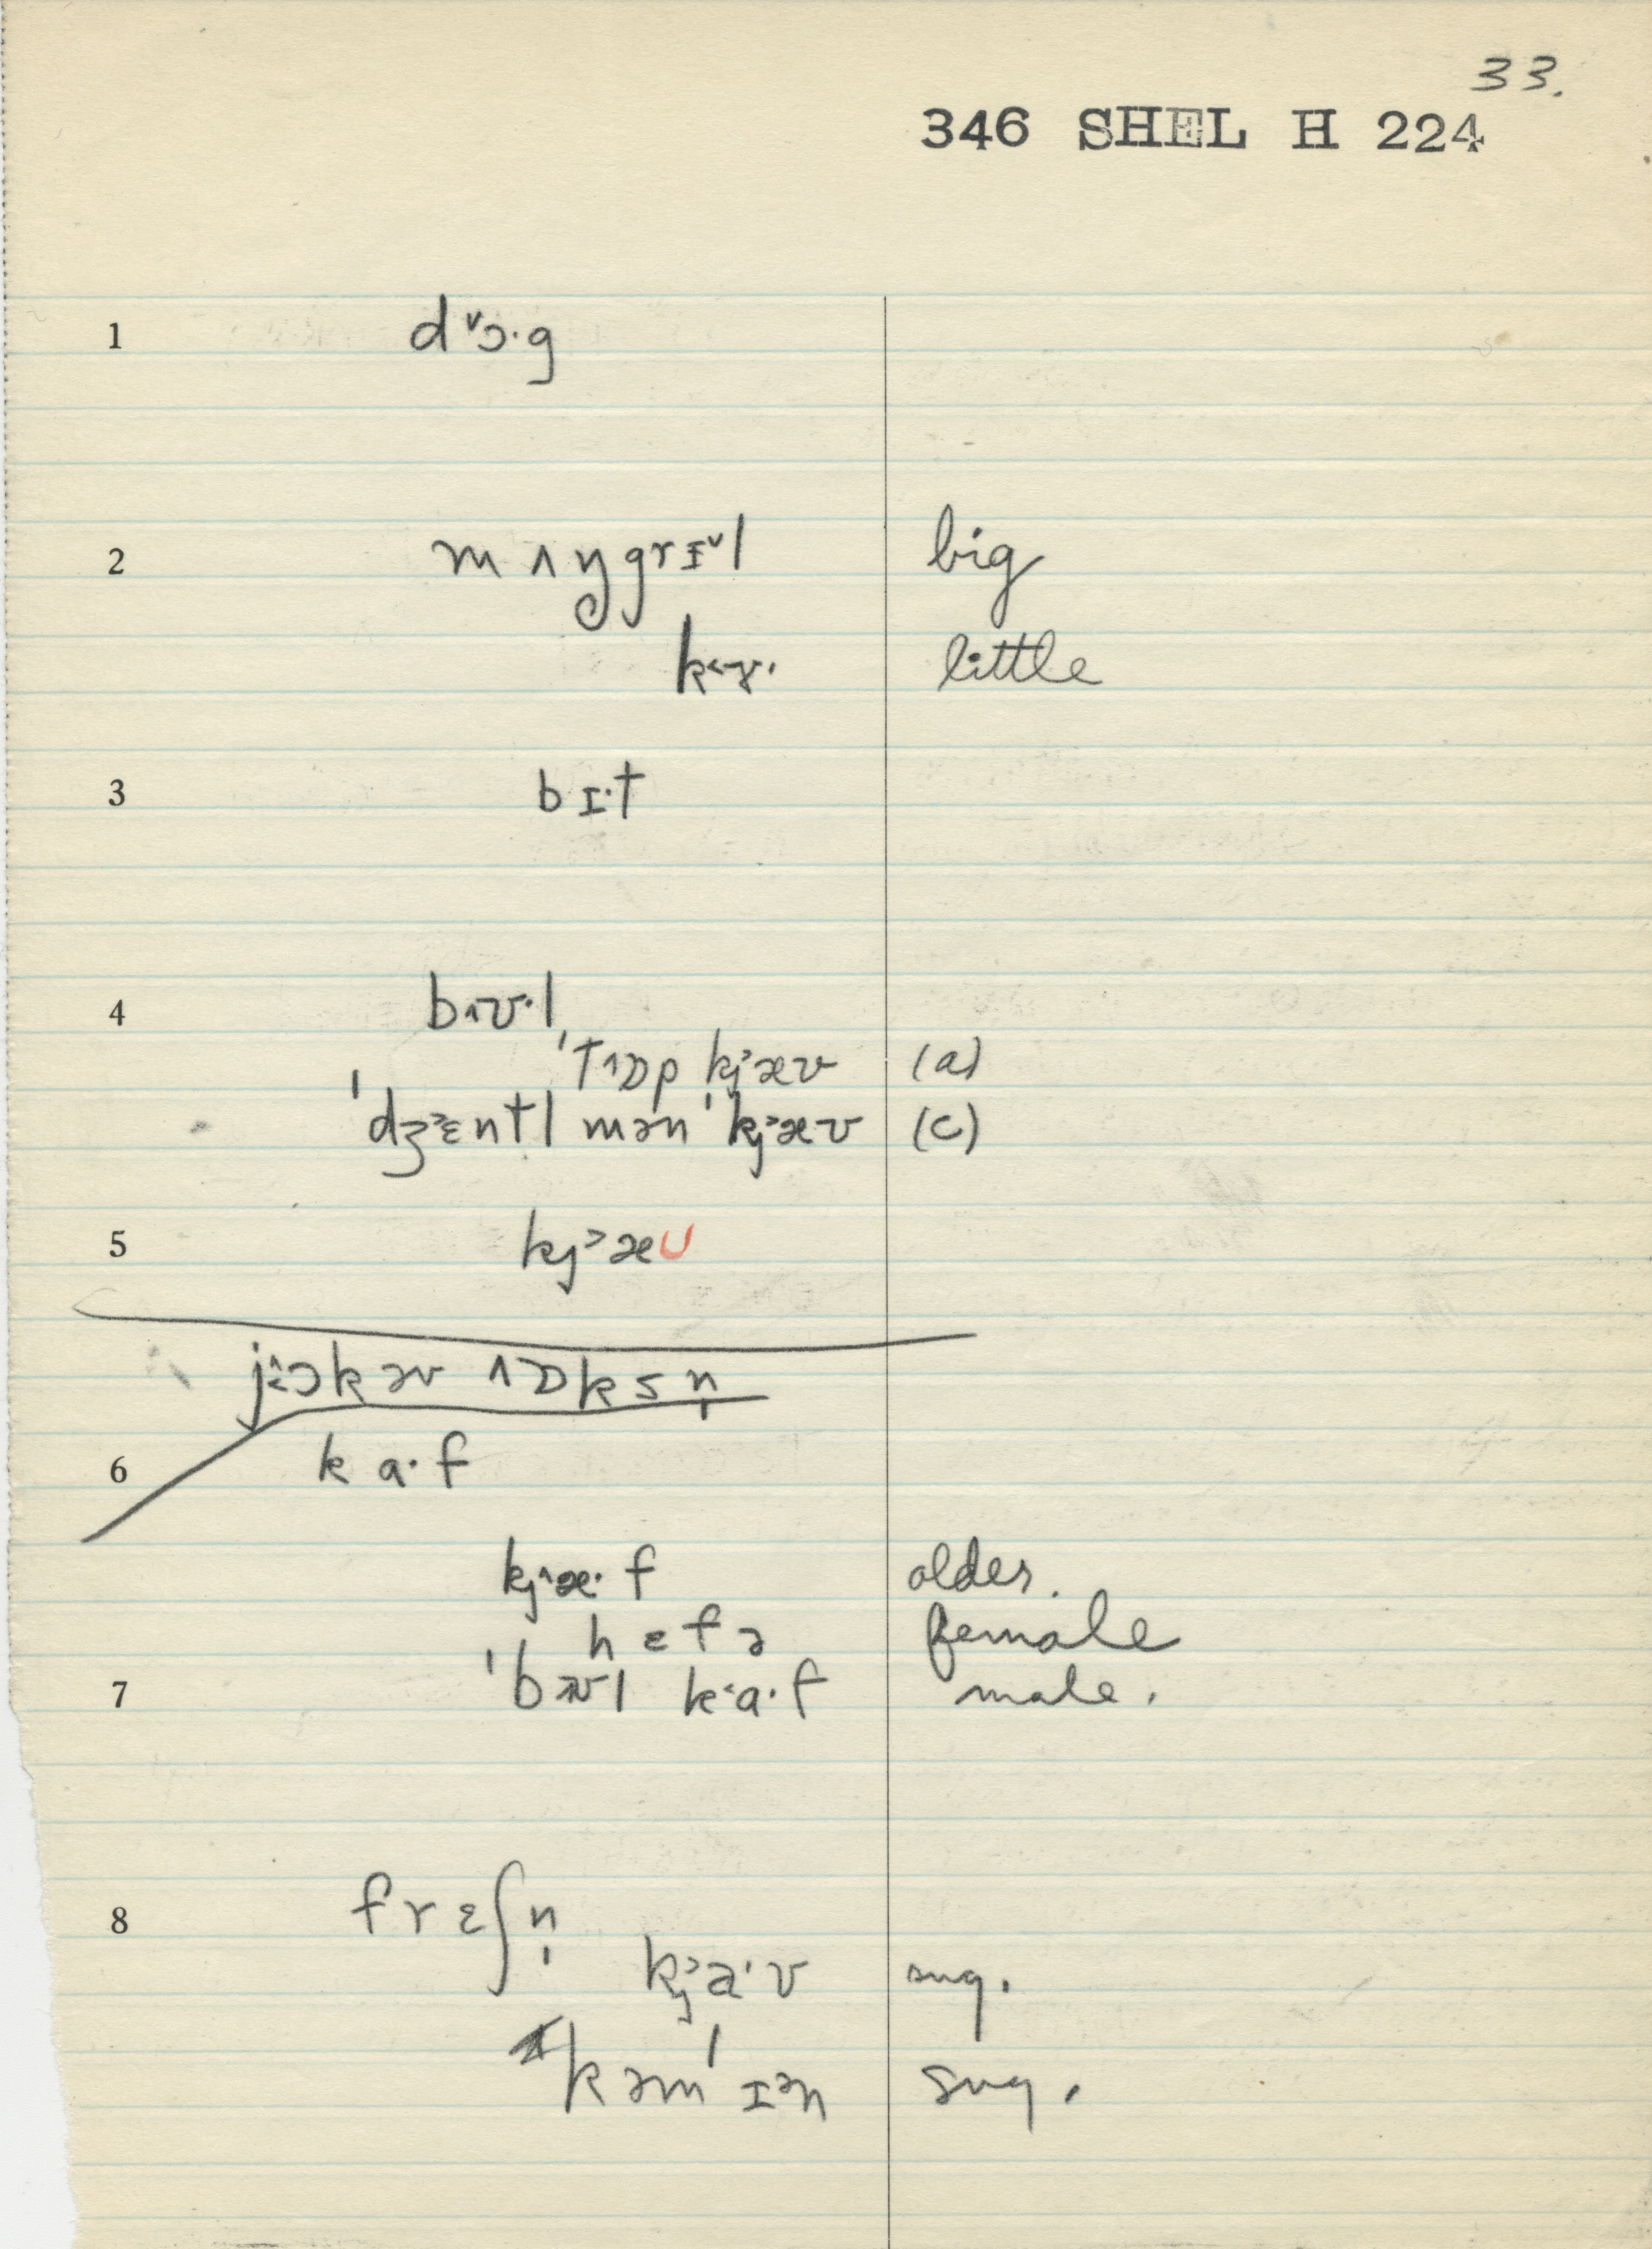 33.
346 SHEL H 224
1 d ˅ɔ·g
2 m ʌ ŋ g r ɪ˅l big
k˂ɤ· little
3 b ɪ·t
4 b˄ʊ·l
ˈt˄ɒp kj˃æʊ (a)
ˈdʒ˃ɛntl mən ˈkj˃æʊ (c)
5 kj˃æU
j˂ɔk əv ˄ɒksn̩
6 k a·f
kj˄æ·f older.
h ɛ f ə female
7 ˈbʊl k˂a·f male.
8 f r ɛ ʃ n̩
kj˃a·ʊ sug.
k əm ˈɪən sug.